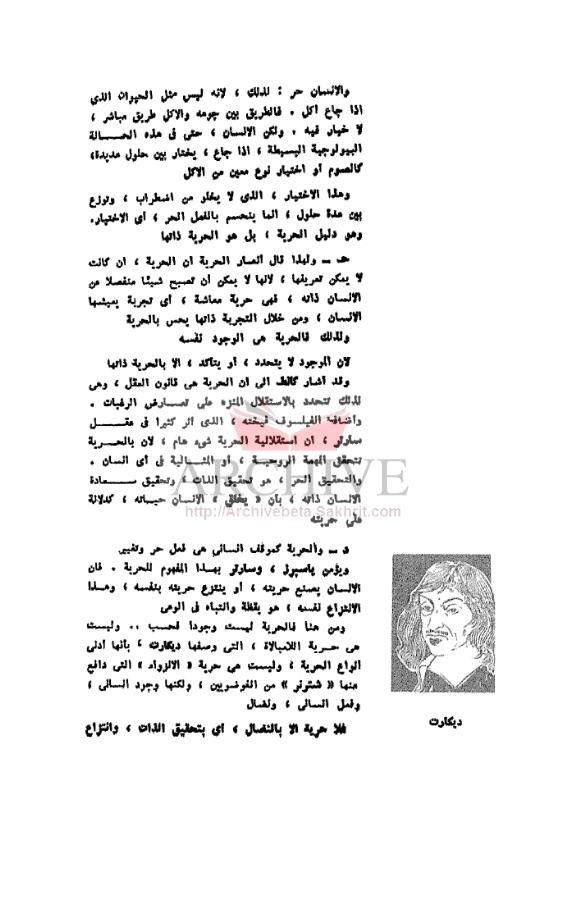 والانسان حر : لذلك ، لانه ليس مثل الحيوان الذى
اذا جاع أكل . فالطريق بين جوعه والاكل طريق مباشر ،
لا خيار فيه . ولكن الانسان ، حتى فى هذه الحسالة
البيولوجية البسيطة ، اذا جاع ، يختار بين حلول عديدة،
كالصوم أو اختيار نوع معين من الاكل
وهذا الاختيار ، الذى لا يخلو من اضطراب ، وتوزع
بين عدة حلول ، انما ينحسم بالفعل الحر ، أى الاختيار.
وهو دليل الحرية ، بل هو الحرية ذاتها
حـ ــ ولهذا قال أنصار الحرية ان الحرية ، ان كانت
لا يمكن تعريفها ، لانها لا يمكن أن تصبح شيئا منفصلا عن
الانسان ذاته ، فهى حرية معاشة ، أى تجربة يعيشها
الانسان ، ومن خلال التجربة ذاتها يحس بالحرية
ولذلك فالحرية هى الوجود نفسه
لان الوجود لا يتحدد ، أو يتأكد ، الا بالحرية ذاتها
وقد أشار كانط الى أن الحرية هى قانون العقل ، وهى
لذلك تتحدد بالاستقلال المنزه على تعسارض الرغبات .
وأضاف الفيلسوف فيخته ، الذى أثر كثيرا فى عقسل
سارتر ، ان استقلالية الحرية شىء هام ، لان بالحسرية
تتحقق المهمة الروحيسة ، أو المثسالية فى أى انسان .
والتحقيق الحر ، هو تحقيق الذات ، وتحقيق سسعادة
الانسان ذاته ، بأن « يخلق » الانسان حيساته ، كدلالة
على حريته
ARCHIVE
http://Archivebeta.Sakhrit.com
د ــ والحرية كموقف انسانى هى فعل حر وتغيير
ويؤمن ياسبرز ، وسارتر بهسذا المفهوم للحرية . فان
الانسان يصنع حريته ، أو ينتزع حريته بنفسه ، وهسذا
الانتزاع لنفسه ، هو يقظة وانتباه فى الوعى
ومن هنا فالحرية ليست وجودا فحسب .. وليست
هى حسرية اللامبالاة ، التى وصفها ديكارت ، بأنها أدنى
أنواع الحرية ، وليست هى حرية « الانزواء » التى دافع
عنها « شترنر » من الفوضويين ، ولكنها وجود انسانى ،
وفعل انسانى ، ونضال
فلا حرية الا بالنضال ، أى بتحقيق الذات ، وانتزاع
ديكارت